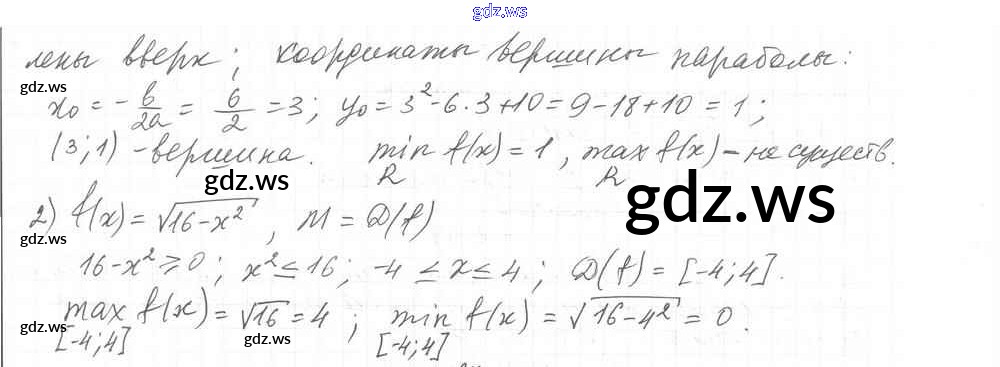 gdz.ws
лены вверх; координаты вершины параболы:
gdz.ws
x₀ = -b/2a = 6/2 = 3; y₀ = 3² - 6·3 + 10 = 9 - 18 + 10 = 1;
(3; 1) - вершина. min f(x) = 1, max f(x) - не существ.
R R
gdz.ws gdz.ws gdz.ws
2) f(x) = √16-x², M = D(f)
gdz.ws
16-x² ≥ 0; x² ≤ 16; -4 ≤ x ≤ 4; D(f) = [-4; 4].
max f(x) = √16 = 4; min f(x) = √16-4² = 0.
[-4; 4] [-4; 4]
gdz.ws gdz.ws gdz.ws